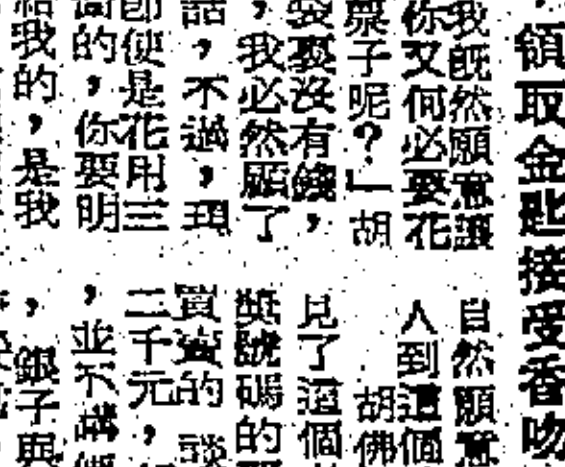 ，領取金匙接受香吻
我既然願意讓
你又何必要花
票子呢？」胡
袋裏沒有錢，
，我必然願了
話，不過，現
即使是花用三
的，你要明
給我的，是我
自然願意
人到這個
胡佛
見了這個
獎號碼的
買賣的談
二千元，
，並不講
，銀子與